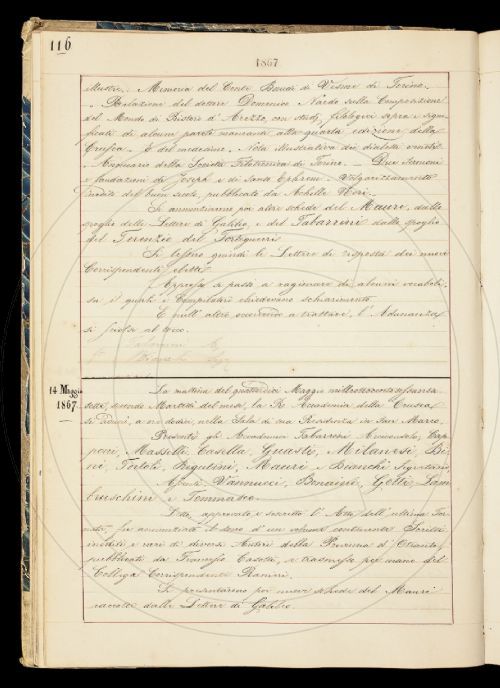 116
1867
illustri. - Memoria del Conte Baudi di Vesme di Torino.
- Relazione del dottore Domenico Nardo sulla Composizione
del Mondo di Ristoro d'Arezzo, con studj filologici sopra i signi-
ficati di alcune parole mancanti alla quarta edizione della
Crusca. - E del medesimo. - Nota illustrativa dei dialetti
- Annuario della Società Filotecnica di Torino. - Due Sermoni
e laudazioni di Joseph e di Santo Ephrem. Volgarizzamento
inedito del buon secolo, pubblicato da Achille Neri.
Si annunziarono poi altre schede del Mauri, dallo
spoglio delle Lettere di Galileo, e del Tabarrini dallo spoglio
del Terenzio del Forteguerri.
Si lessero quindi le Lettere di risposta dei nuovi
Corrispondenti eletti.
Appresso si passò a ragionare di alcuni vocaboli,
su i quali i Compilatori chiedevano schiarimento.
E null'altro occorrendo a trattare, l'Adunanza
si sciolse al tocco.
Tabarrini
Bianchi Seg.
14 Maggio
1867.
La mattina del quattordici Maggio milleottocentosessanta-
sette, secondo Martedì del mese, la R. Accademia della Crusca
si adunò, a ore dodici, nella Sala di sua Residenza in San Marco.
Presenti gli Accademici Tabarrini Arciconsolo, Cap-
poni, Masselli, Casella, Guasti, Milanesi, Bi-
ni, Tortoli, Rigutini, Mauri e Bianchi Segretario.
Assenti Vannucci, Bonaini, Gotti, Lam-
bruschini e Tommaseo.
Letto, approvato e soscritto l'Atto dell'ultima Tor-
nata, fu annunziato il dono d'un volume contenente Scritti
inediti e rari di diversi Autori della Provincia d'Otranto,
pubblicati da Francesco Casotti, e trasmesso per mano del
Collega Corrispondente Ranieri.
Si presentarono poi nuove schede del Mauri
raccolte dalle Lettere di Galileo.